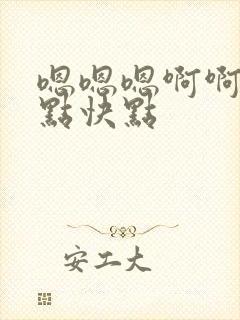 嗯嗯嗯啊啊
點快點
安工大